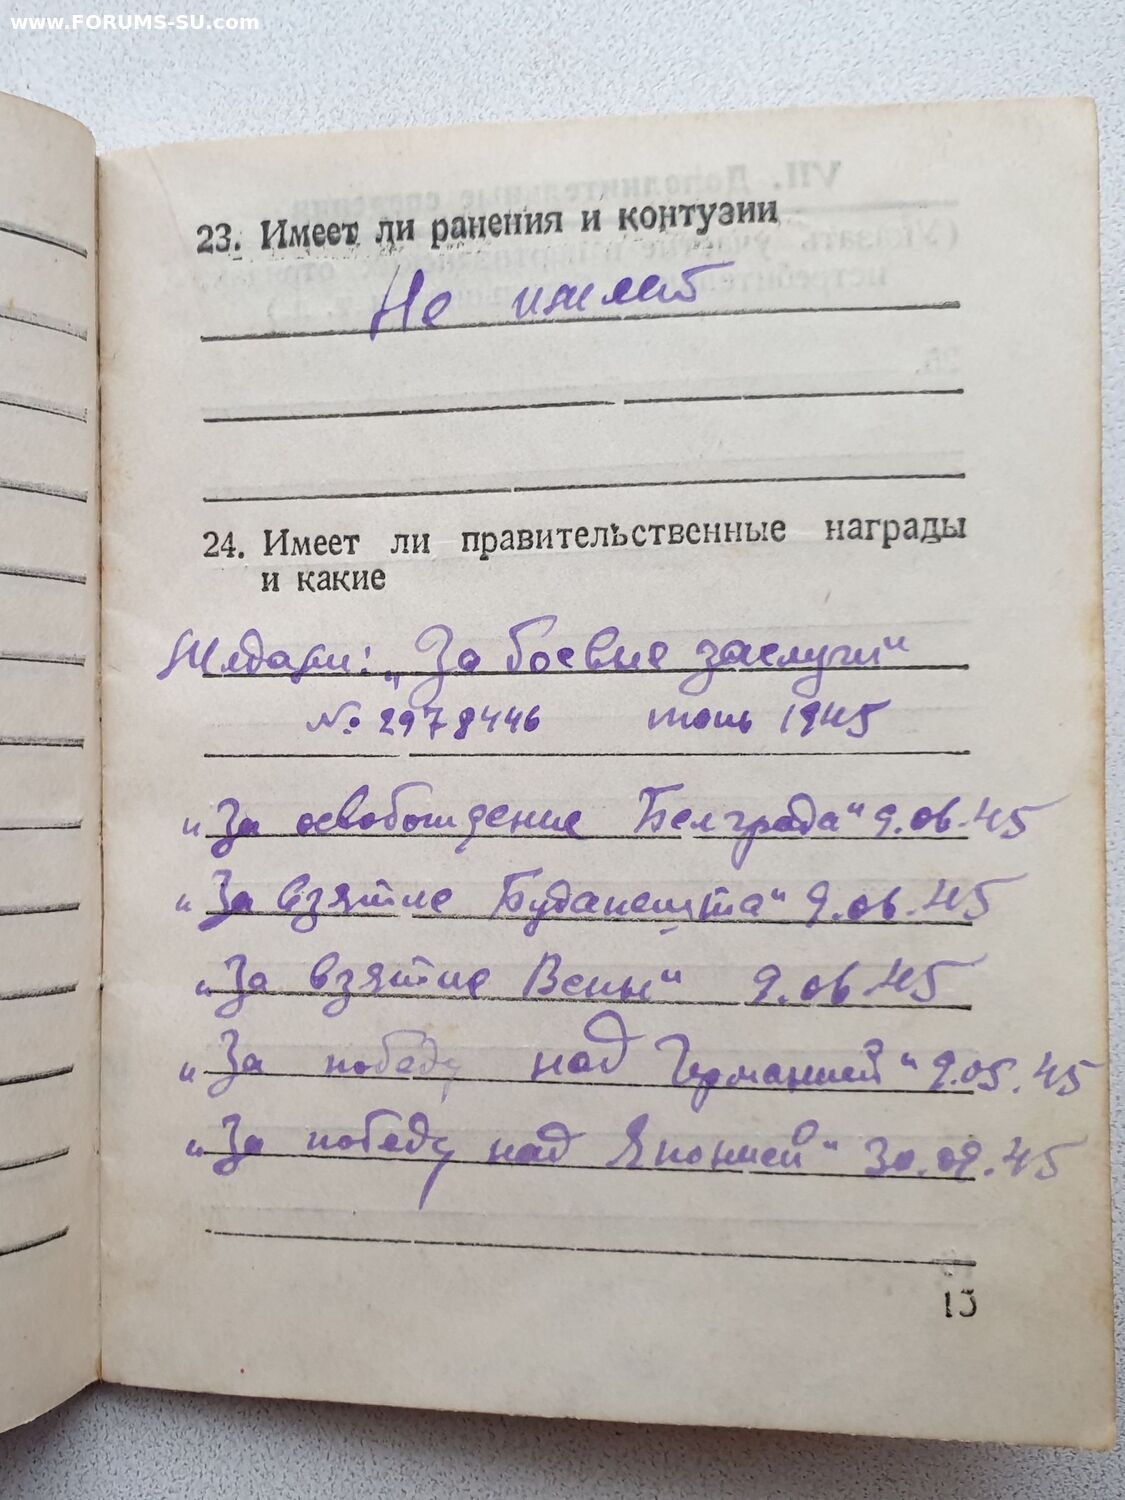 www.FORUMS-SU.com
23. Имеет ли ранения и контузии
Не имеет
24. Имеет ли правительственные награды
и какие
Медали: „За боевые заслуги"
№ 2978446 июнь 1945
„За освобождение Белграда" 9.06.45
„За взятие Будапешта" 9.06.45
„За взятие Вены" 9.06.45
„За победу над Германией" 9.05.45
„За победу над Японией" 30.09.45
13